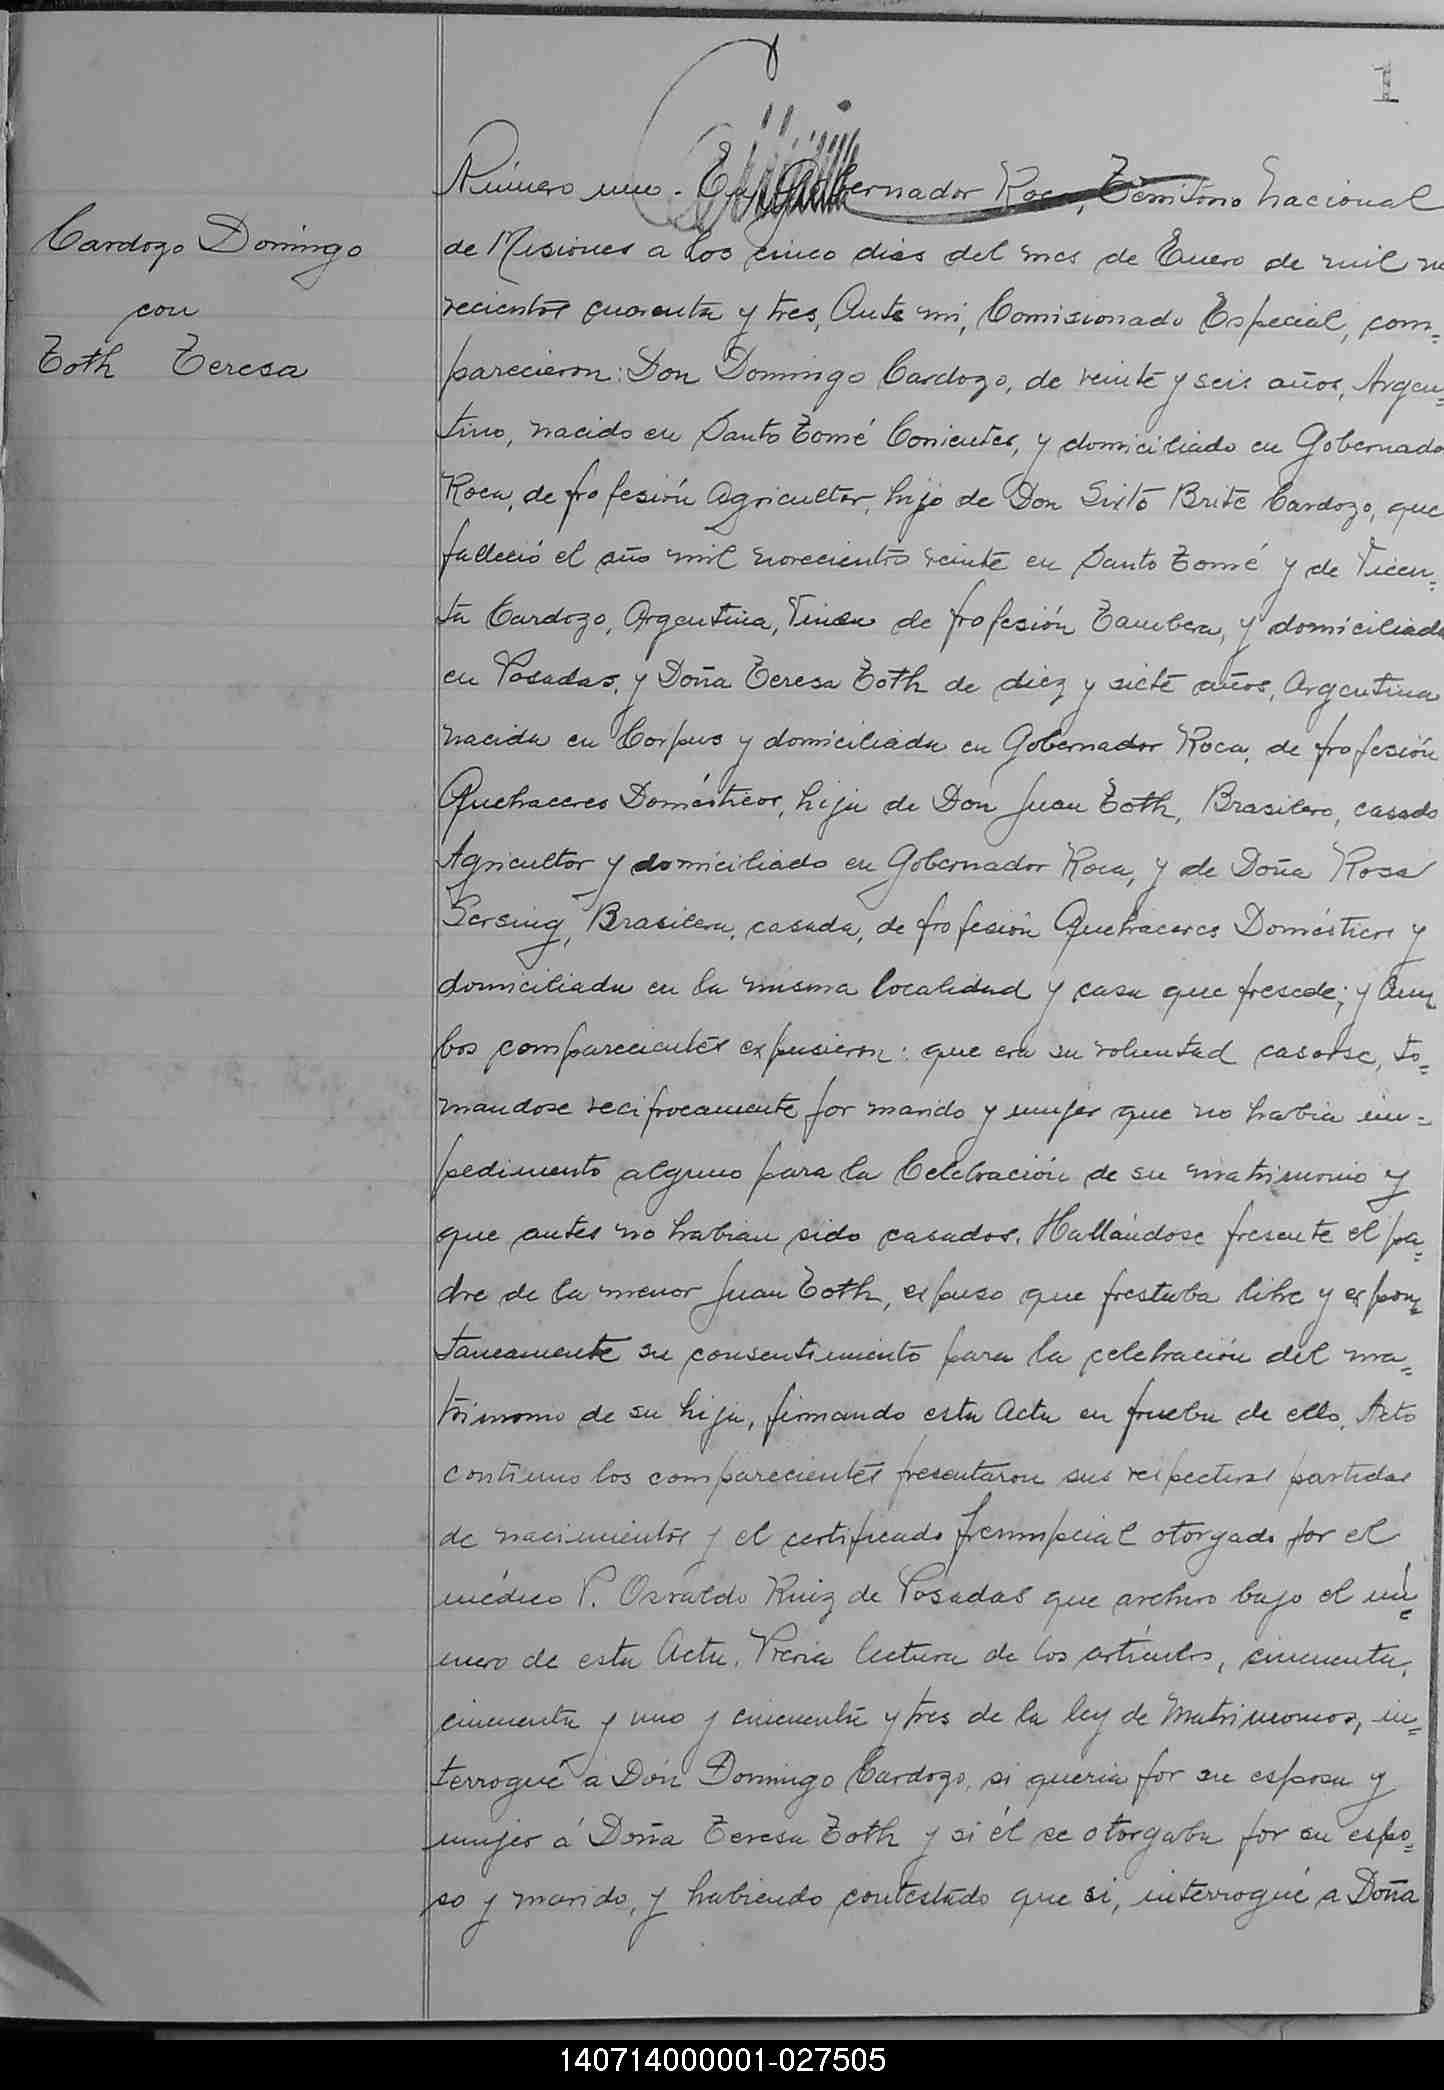 1
Número uno. En Gobernador Roca, Territorio Nacional
Cardozo Domingo
con
Toth Teresa
de Misiones a los cinco dias del mes de Enero de mil no
vecientos cuarenta y tres, Ante mi, Comisionado Especial, com=
parecieron: Don Domingo Cardozo, de veinte y seis años, Argen=
tino, nacido en Santo Tomé Corrientes, y domiciliado en Gobernador
Roca, de profesión Agricultor, hijo de Don Sixto Brite Cardozo, que
falleció el año mil novecientos veinte en Santo Tomé y de Vicen=
ta Cardozo, Argentina, Viuda de profesión Tambera, y domiciliada
en Posadas, y Doña Teresa Toth de diez y siete años, Argentina
nacida en Corpus y domiciliada en Gobernador Roca, de profesión
Quehaceres Domésticos, hija de Don Juan Toth, Brasilero, casado
Agricultor y domiciliado en Gobernador Roca, y de Doña Rosa
Sersing, Brasilera, casada, de profesión Quehaceres Domésticos y
domiciliada en la misma localidad y casa que presede; y Am=
bos comparecientes expusieron: que era su voluntad casarse, to=
mandose reciprocamente por marido y mujer que no habia im=
pedimento alguno para la Celebración de su matrimonio y
que antes no habian sido casados. Hallándose presente el pa=
dre de la menor Juan Toth, expuso que prestaba libre y expon=
taneamente su consentimiento para la celebración del ma=
trimonio de su hija, firmando esta Acta en prueba de ello. Acto
continuo los comparecientes presentaron sus respectivas partidas
de nacimientos y el certificado prenupcial otorgado por el
médico P. Osvaldo Ruiz de Posadas que archivo bajo el nú=
mero de esta Acta. Previa lectura de los artículos, cincuenta,
cincuenta y uno y cincuenta y tres de la ley de Matrimonios, in=
terrogué a Don Domingo Cardozo, si queria por su esposa y
mujer á Doña Teresa Toth y si él se otorgaba por su espo=
so y marido, y habiendo contestado que si, interrogué a Doña
140714000001-027505